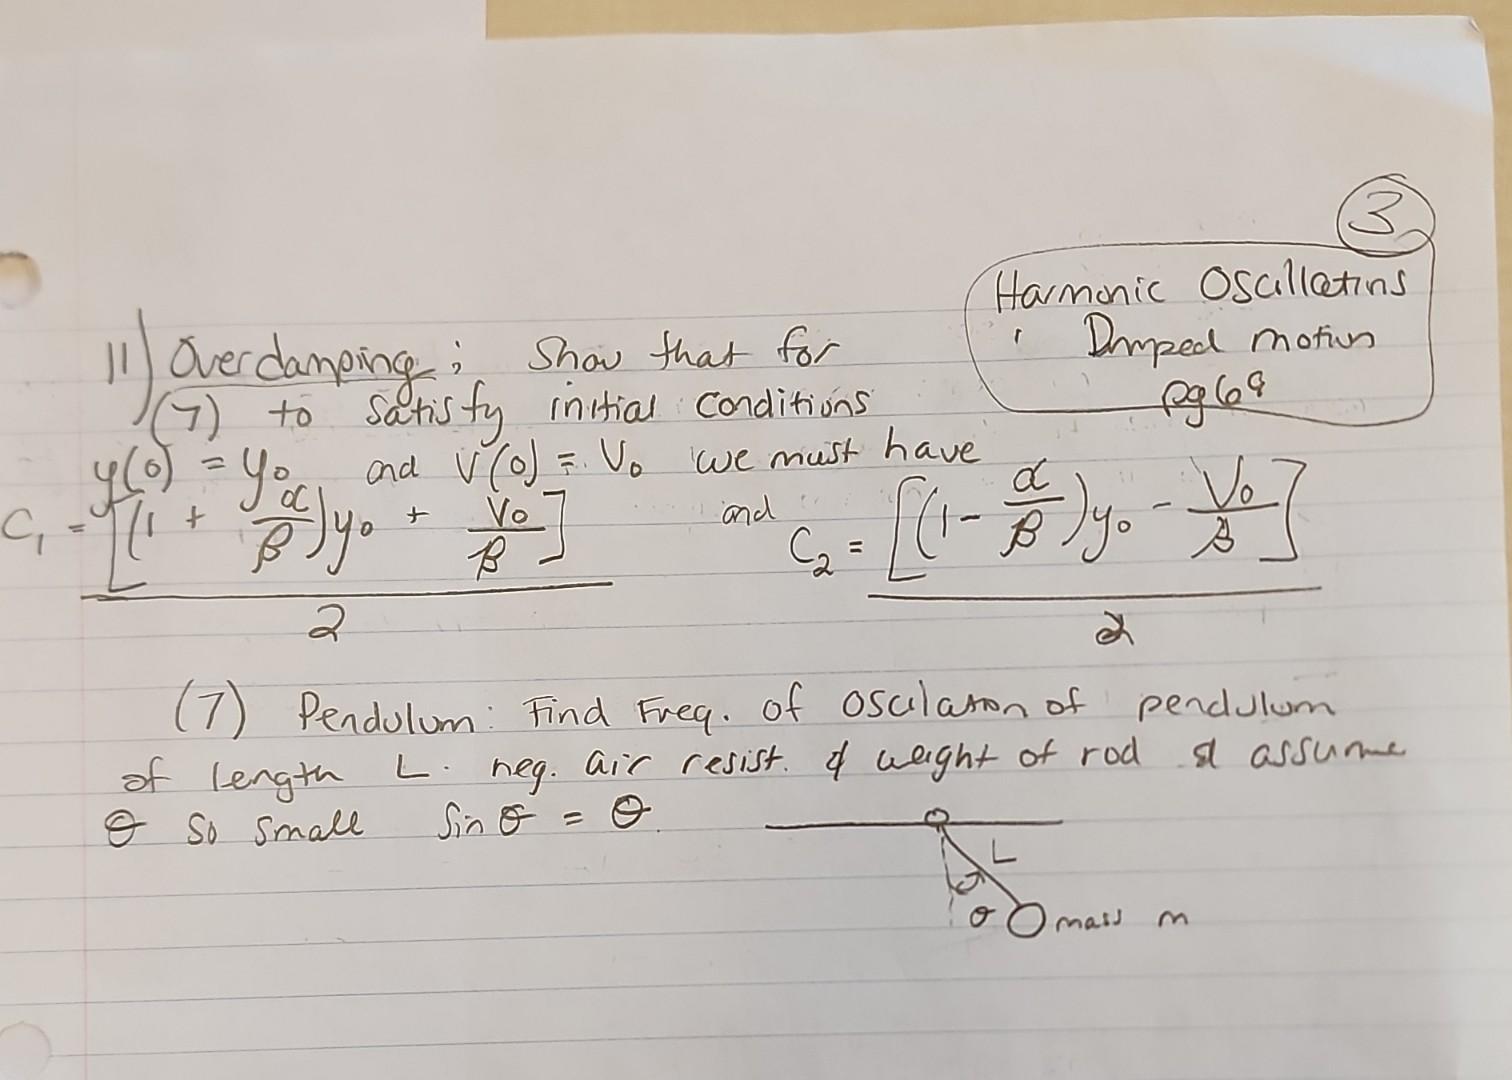 3
Harmonic Oscillatins
Dmped motion
pg 69
11) Overdamping; Show that for
(7) to satisfy initial conditions
y(0) = y₀ and v(0) = V₀ we must have
C₁ = [(1 + α/β)y₀ + V₀/β] / 2 and C₂ = [(1 - α/β)y₀ - V₀/β] / 2
(7) Pendulum: Find Freq. of oscilation of pendulum
of length L. neg. air resist. & weight of rod & assume
θ so small Sin θ = θ.
L
θ mass m